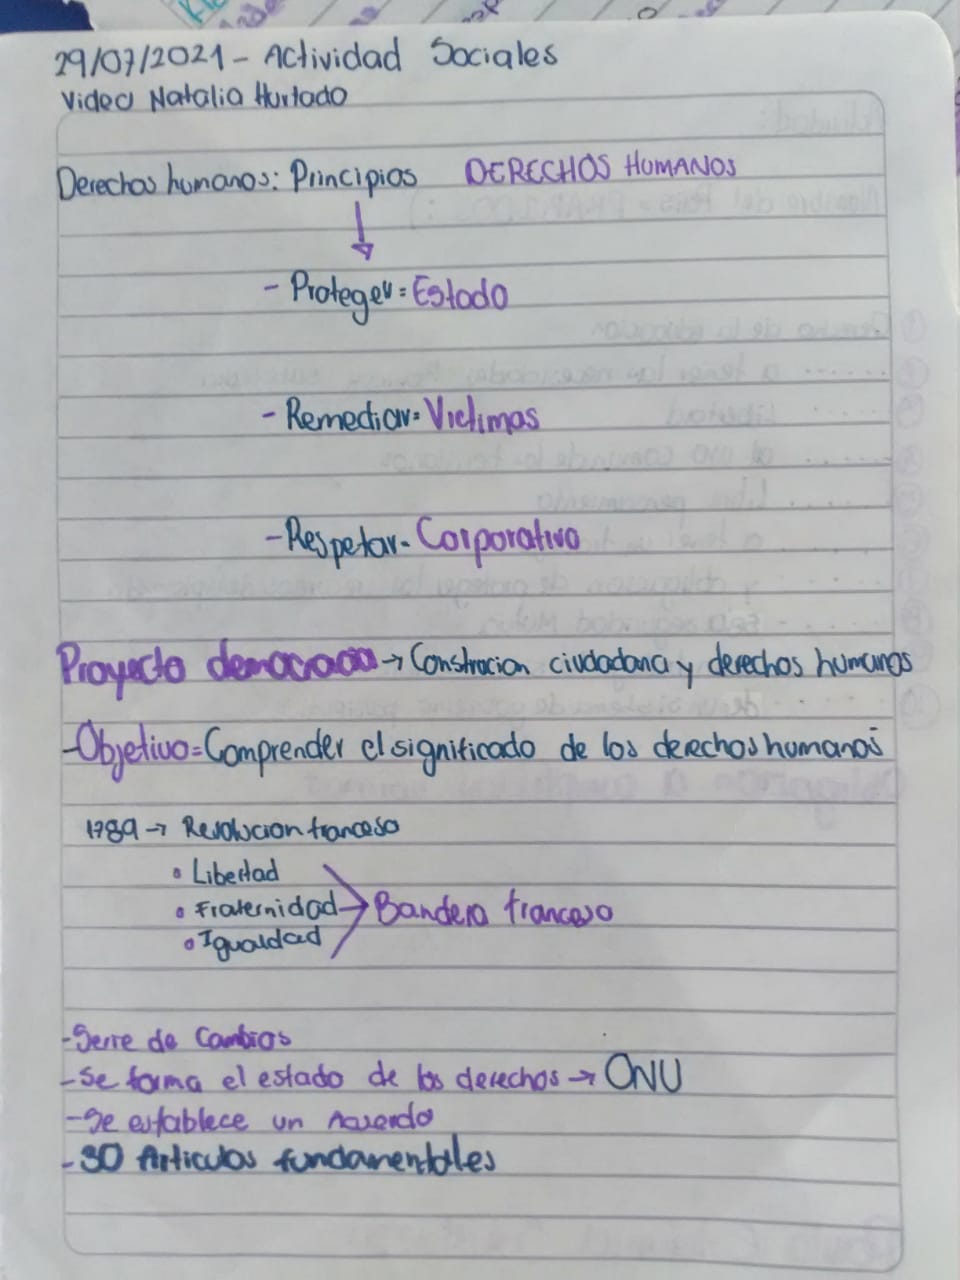 29/07/2021 - Actividad Sociales
Video Natalia Hurtado
Derechos humanos: Principios DERECHOS HUMANOS
- Proteger = Estado
- Remediar = Victimas
- Respetar - Corporativo
Proyecto democracia → Construcion ciudadana y derechos humanos
- Objetivo = Comprender el significado de los derechos humanos
1789 → Revolucion francesa
• Libertad
• Fraternidad
• Igualdad
Bandera francesa
- Serie de Cambios
- Se forma el estado de los derechos → ONU
- Se establece un Acuerdo
- 30 Articulos fundamentales